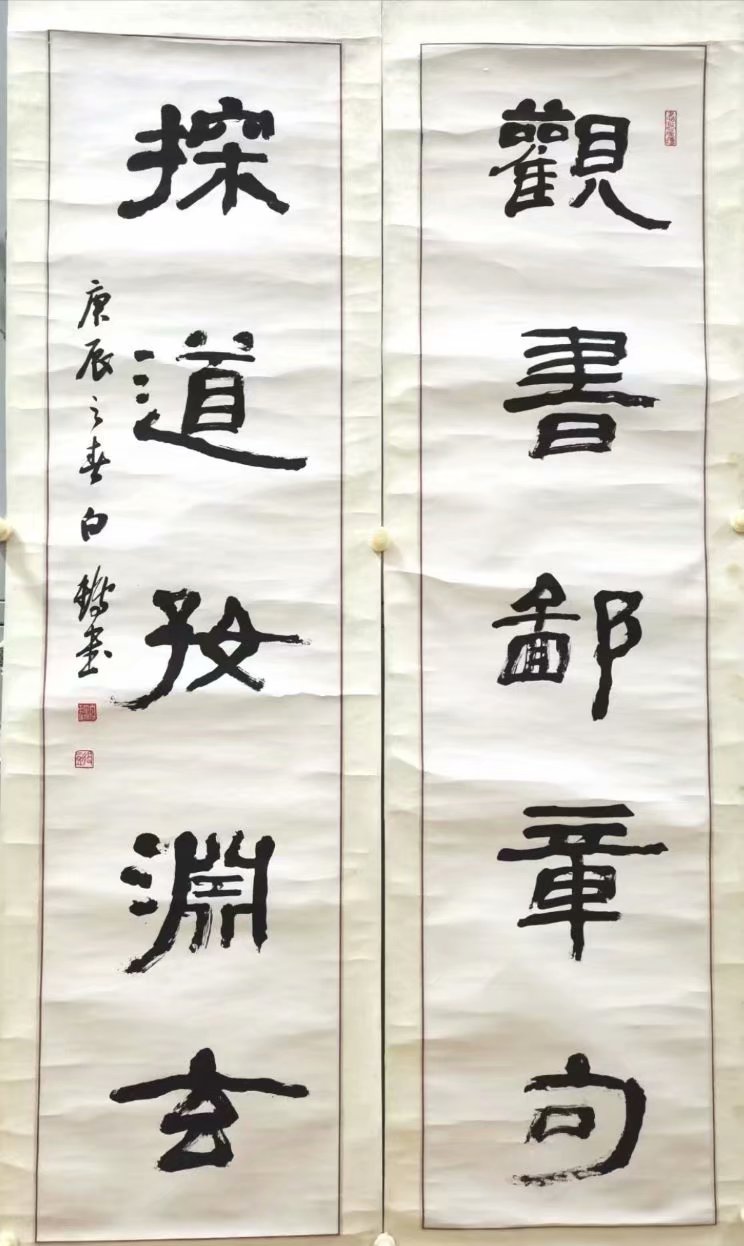 觀書鄙章句
探道好淵玄
庚辰之春白書